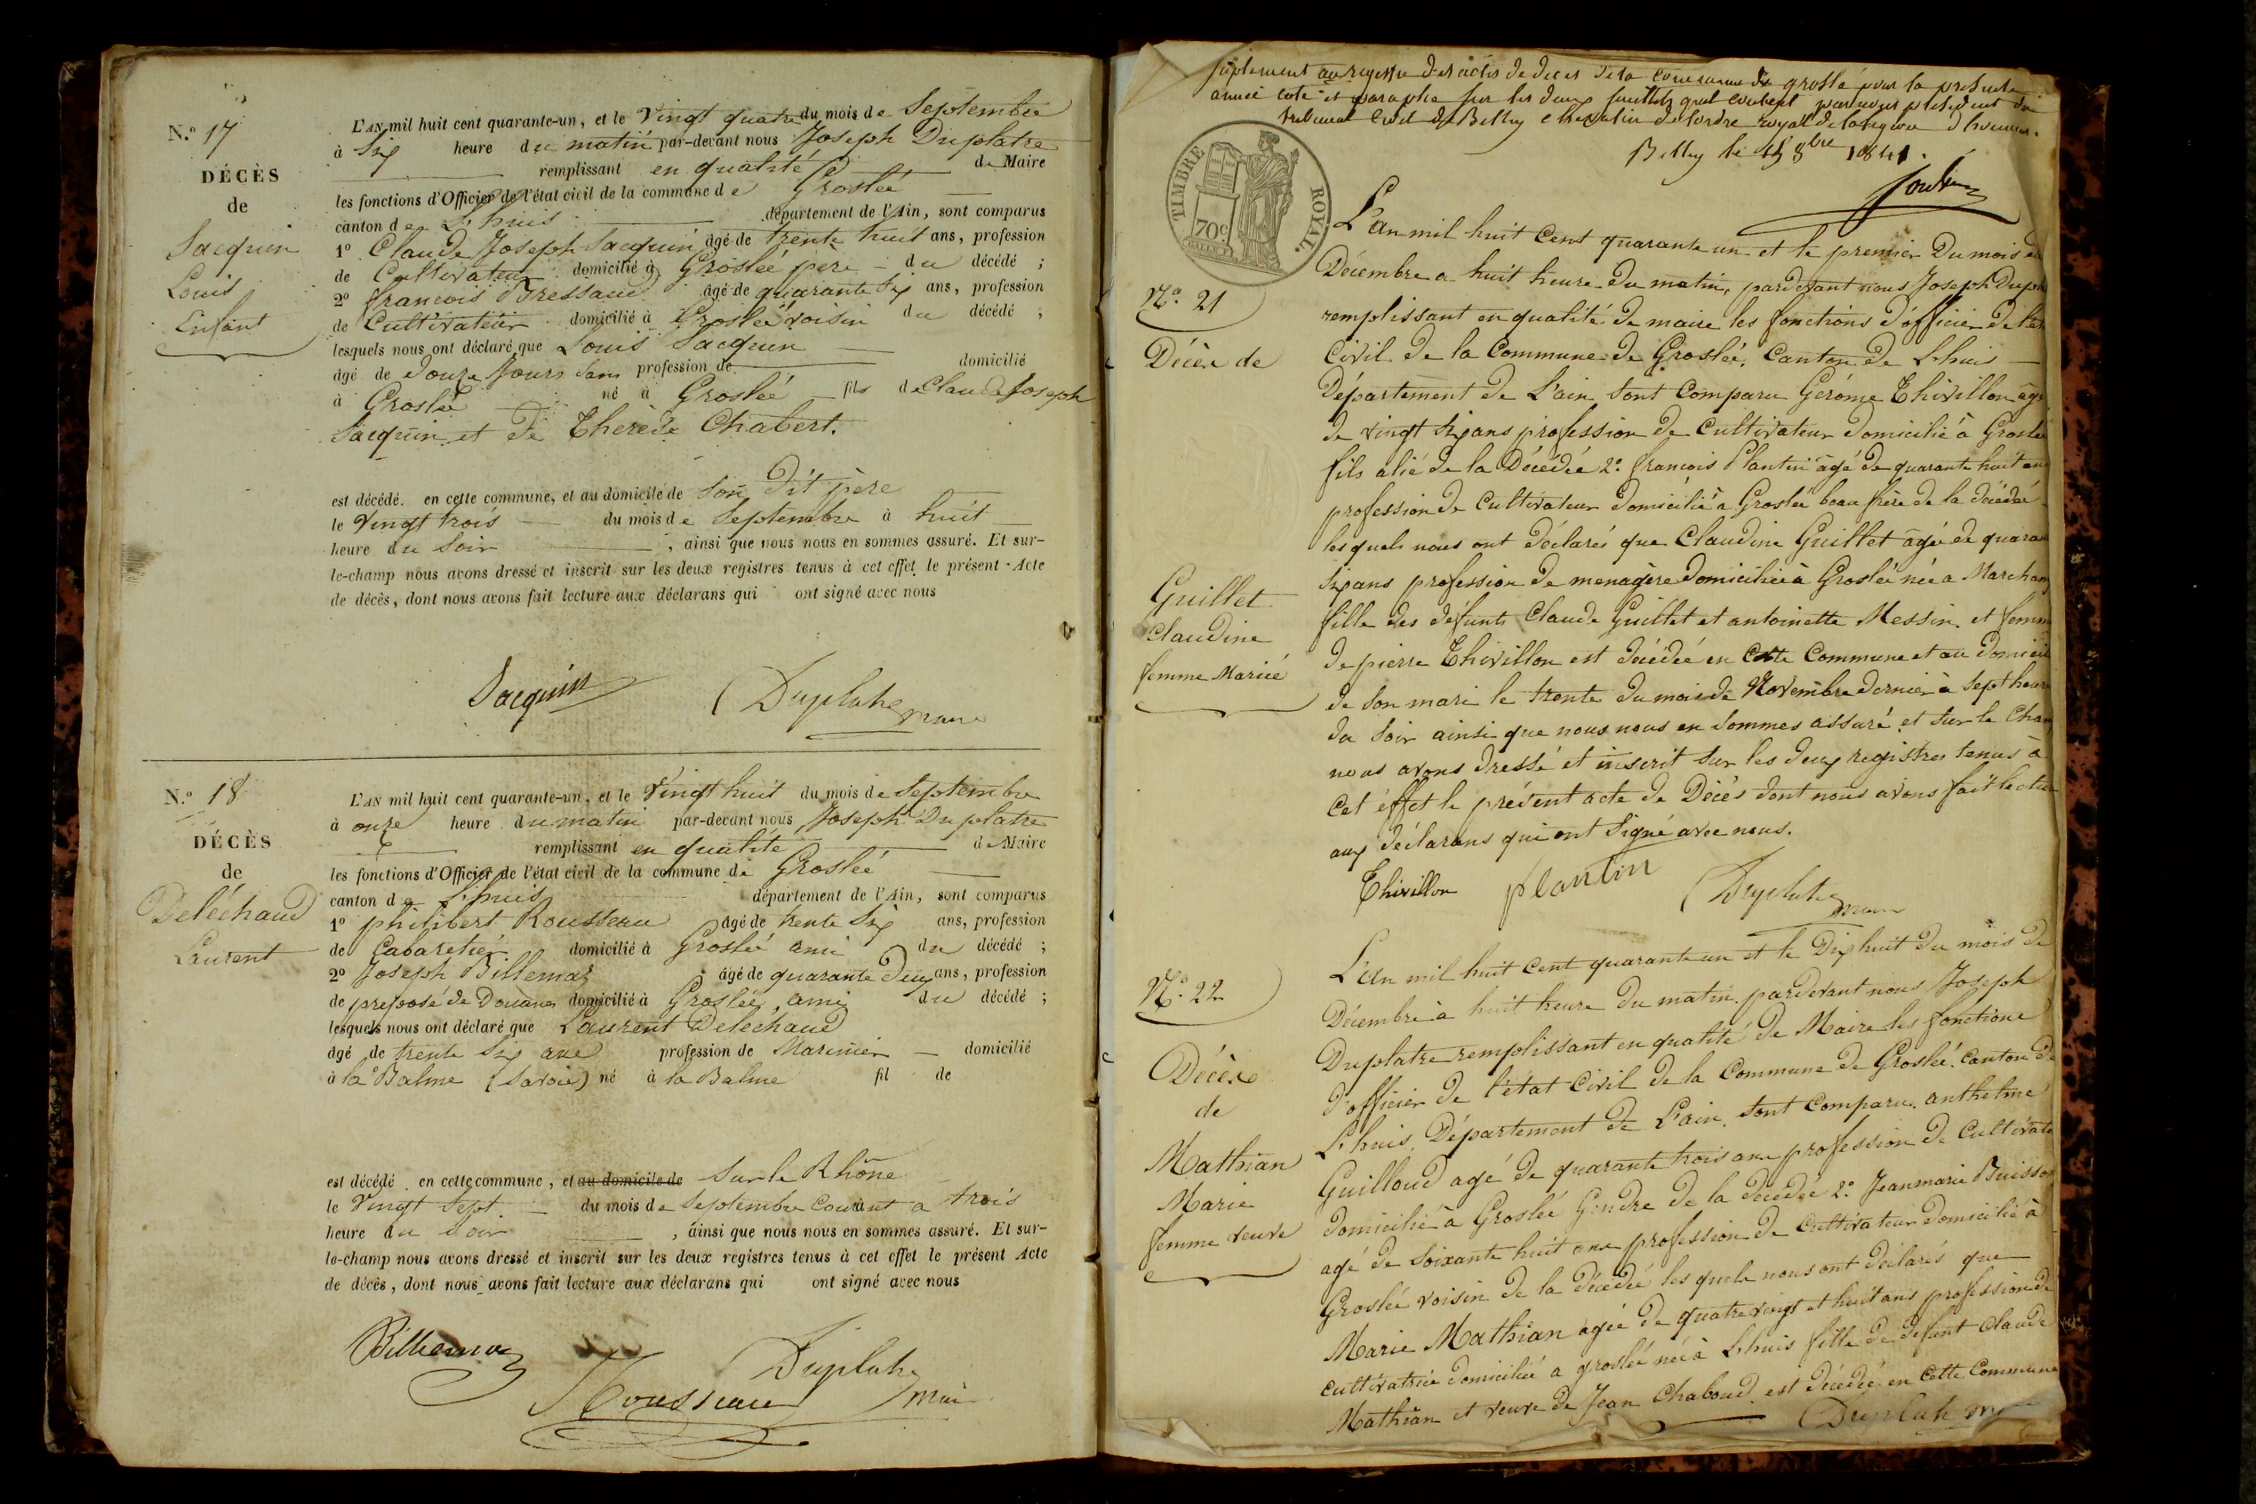 N.º 17
DÉCÈS
de
Jacquin
Louis
Enfant
L'AN mil huit cent quarante-un, et le Vingt quatre du mois de Septembre
à Six heure du matin par-devant nous Joseph Duplatre
remplissant en qualité de Maire
les fonctions d'Officier de l'état civil de la commune de Groslée
canton de Lhuis département de l'Ain, sont comparus
1º Claude Joseph Jacquin âgé de trente huit ans, profession
de Cultivateur domicilié à Groslée père du décédé ;
2º francois Bressaud âgé de quarante Six ans, profession
de Cultivateur domicilié à Groslée voisin du décédé ;
lesquels nous ont déclaré que Louis Jacquin
âgé de douze Jours Sans profession de domicilié
à Groslée né à Groslée fils de Claude Joseph
Jacquin et de Therèse Chabert.
est décédé en cette commune, et au domicile de Son Dit père
le Vingt trois du mois de Septembre à huit
heure du Soir , ainsi que nous nous en sommes assuré. Et sur-
le-champ nous avons dressé et inscrit sur les deux registres tenus à cet effet le présent Acte
de décès, dont nous avons fait lecture aux déclarans qui ont signé avec nous
Jacquin Duplatre maire
N.º 18
DÉCÈS
de
Deléchaud
Laurent
L'AN mil huit cent quarante-un, et le Vingt huit du mois de Septembre
à onze heure du matin par-devant nous Joseph Duplatre
remplissant en qualité de Maire
les fonctions d'Officier de l'état civil de la commune de Groslée
canton de Lhuis département de l'Ain, sont comparus
1º philibert Rousseau âgé de trente Six ans, profession
de Cabaretier domicilié à Groslée ami du décédé ;
2º Joseph Billemaz âgé de quarante Deux ans, profession
de preposé de Douanes domicilié à Groslée, ami du décédé ;
lesquels nous ont déclaré que Laurent Deléchaud
âgé de trente Six ans profession de Marinier domicilié
à la Balme (Savoie) né à la Balme fil de
est décédé en cette commune, et au domicile de Sur le Rhône
le Vingt Sept du mois de Septembre Courant à trois
heure du Soir , ainsi que nous nous en sommes assuré. Et sur-
le-champ nous avons dressé et inscrit sur les deux registres tenus à cet effet le présent Acte
de décès, dont nous avons fait lecture aux déclarans qui ont signé avec nous
Billemaz Rousseau Duplatre maire
Suplement au registre des actes de deces de la commune de groslée pour la presente
année coté et paraphé sur les deux feuillets quil contient par nous président du
tribunal civil de Belley chevalier de lordre royal de la legion dhonneur.
Belley le 8bre 1841.
TIMBRE ROYAL
70c
Nº 21
Décès de
Guillet
Claudine
femme Mariée
L'an mil huit Cent quarante un et le premier Du mois de
Décembre a huit heure Du matin, pardevant nous Joseph Dupla
remplissant en qualité De maire les fonctions d'officier De l'ét
Civil De la Commune De Groslée, Canton De Lhuis
Département De L'ain Sont Comparu Gérôme Thivillon âgé
de vingt Six ans profession De Cultivateur Domicilié à Groslée
fils alié de la Décédée 2º francois Plantin âgé De quarante huit ans
profession De Cultivateur Domicilié à Groslée beau frère de la décédée
lesquels nous ont Déclarés que Claudine Guillet âgée de quaran
Six ans profession De menagère Domiciliée à Groslée née a Marcham
fille des défunts Claude Guillet et antoinette Messin et femme
De pierre Thivillon est décédée en Cette Commune et au Domicil
de Son mari le trente du mois de Novembre Dernier à Sept heure
du Soir ainsi que nous nous en Sommes assuré. et Sur le Cham
nous avons Dressé et inscrit Sur les deux registres tenus à
Cet éffet le présent acte De Décès dont nous avons fait lectur
aux déclarans qui ont Signé avec nous.
Thivillon plantin Duplatre maire
Nº 22
Décès
de
Mathian
Marie
femme veuve
L'an mil huit Cent quarante un et le Dix huit Du mois De
Décembre à huit heure Du matin. pardevant nous Joseph
Duplatre remplissant en qualité De Maire les fonctions
D'officier De l'état Civil De la Commune De Groslée. Canton De
Lhuis, Département De L'ain. Sont Comparu. anthelme
Guilloud agé De quarante trois ans profession De Cultivate
domicilié à Groslée Gendre De la décédée 2º Jeanmarie Buisson
agé de Soixante huit ans profession De Cultivateur Domicilié à
Groslée voisin De la décédée lesquels nous ont déclarés que
Marie Mathian agée De quatre vingt et huit ans profession de
cultivatrice domiciliée a groslée née à Lhuis fille De défunt Claude
Mathian et veuve De Jean Chaboud est décédée en Cette Commune
Duplatre